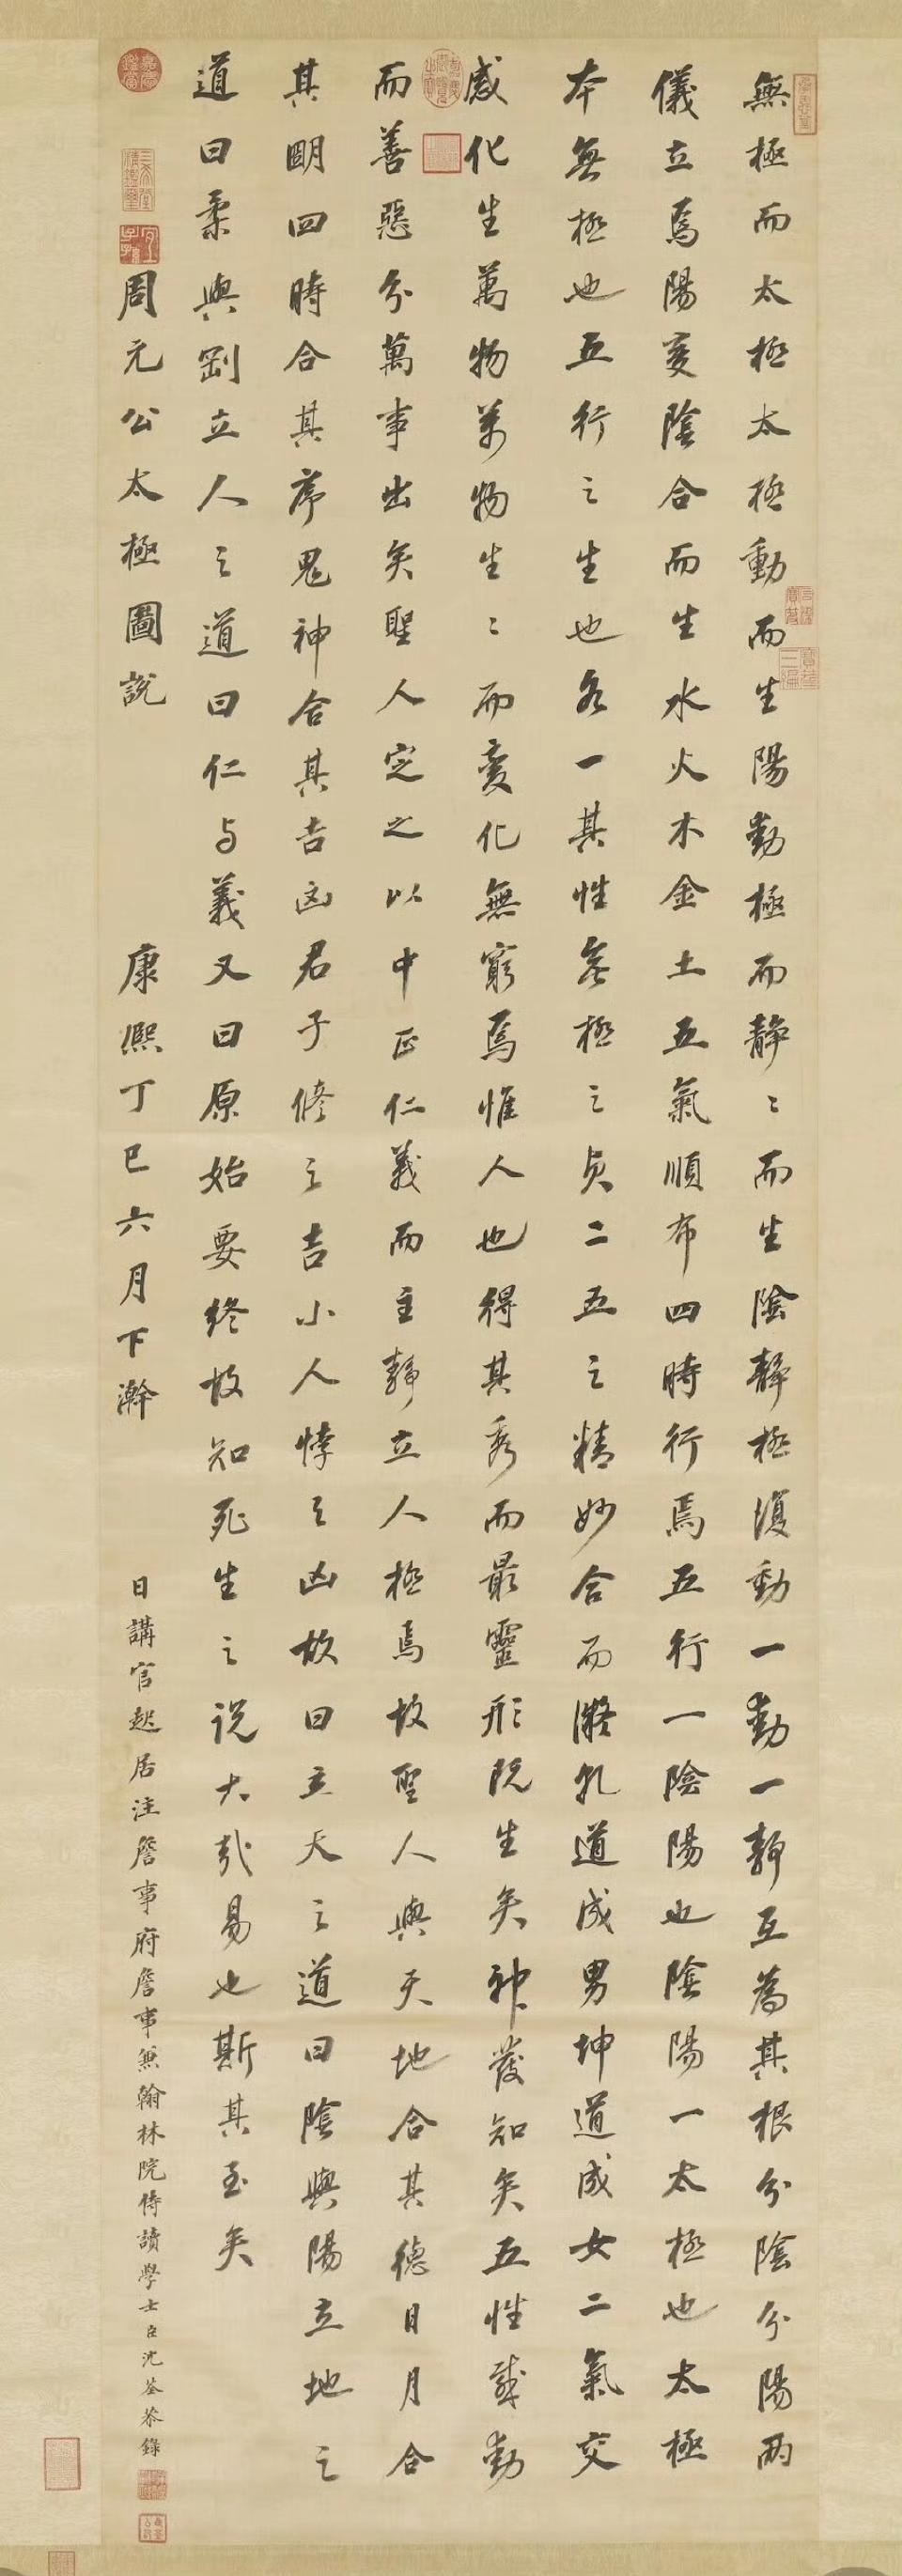 無極而太極太極動而生陽動極而静〻而生陰静極復動一動一静互為其根分陰分陽兩
儀立焉陽変陰合而生水火木金土五氣順布四時行焉五行一陰陽也陰陽一太極也太極
本無極也五行之生也各一其性無極之真二五之精妙合而凝乹道成男坤道成女二氣交
感化生萬物萬物生〻而變化無窮焉惟人也得其秀而最靈形既生矣神發知矣五性感動
而善惡分萬事出矣聖人定之以中正仁義而主静立人極焉故聖人與天地合其德日月合
其明四時合其序鬼神合其吉凶君子修之吉小人悖之凶故曰立天之道曰陰與陽立地之
道曰柔與剛立人之道曰仁与義又曰原始要終故知死生之説大哉易也斯其至矣
周元公太極圖說
康熙丁巳六月下澣
日講官起居注詹事府詹事兼翰林院侍讀學士臣沈荃恭錄